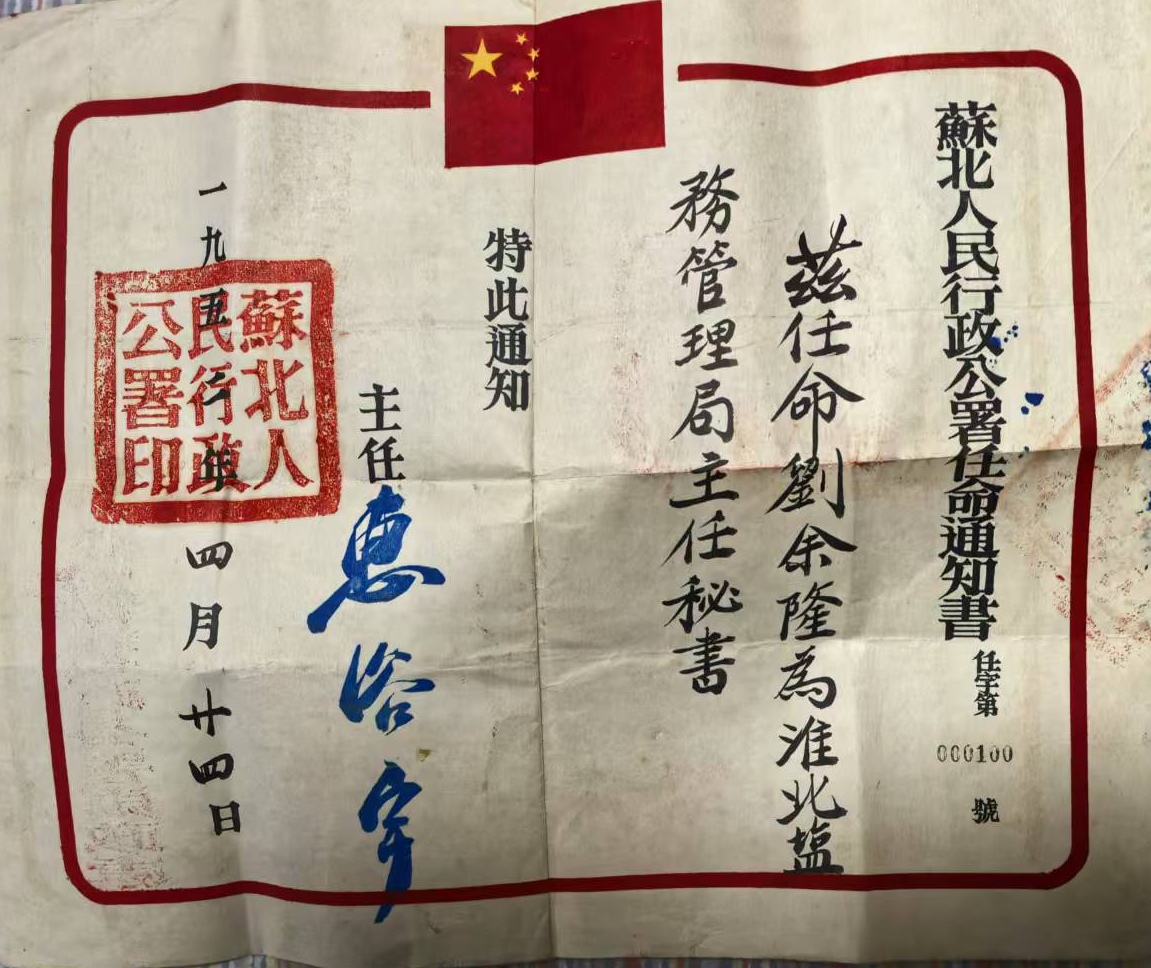 蘇北人民行政公署任命通知書
任字第
000100
號
茲任命劉余隆為淮北塩
務管理局主任秘書
特此通知
主任
惠浴宇
一九五二年四月廿四日
蘇北人
民行政
公署印